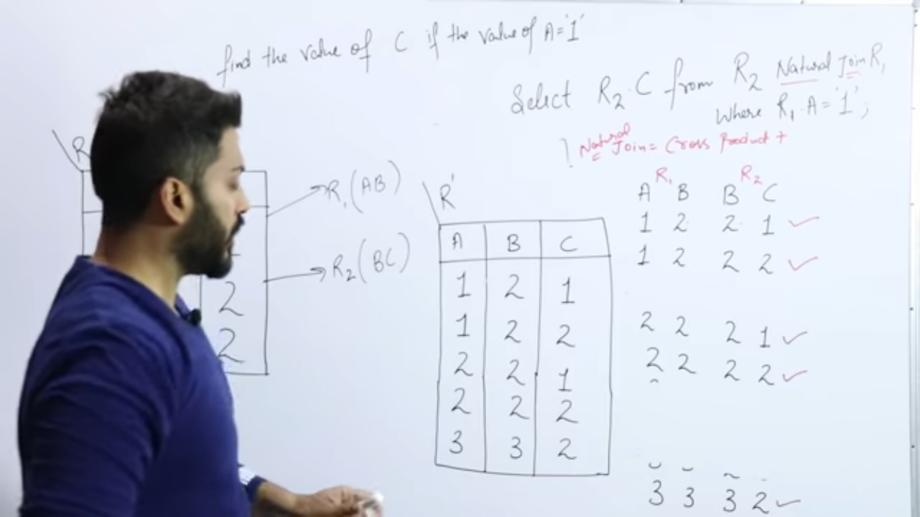 find the value of C if the value of A='1'
Select R2.C from R2 Natural Join R1
Where R1.A='1';
Natural Join = Cross Product +
R
R1(AB)
R2(BC)
2
2
R'
A B C
1 2 1
1 2 2
2 2 1
2 2 2
3 3 2
R1 R2
A B B C
1 2 2 1 ✓
1 2 2 2 ✓
2 2 2 1 ✓
2 2 2 2 ✓
3 3 3 2 ✓